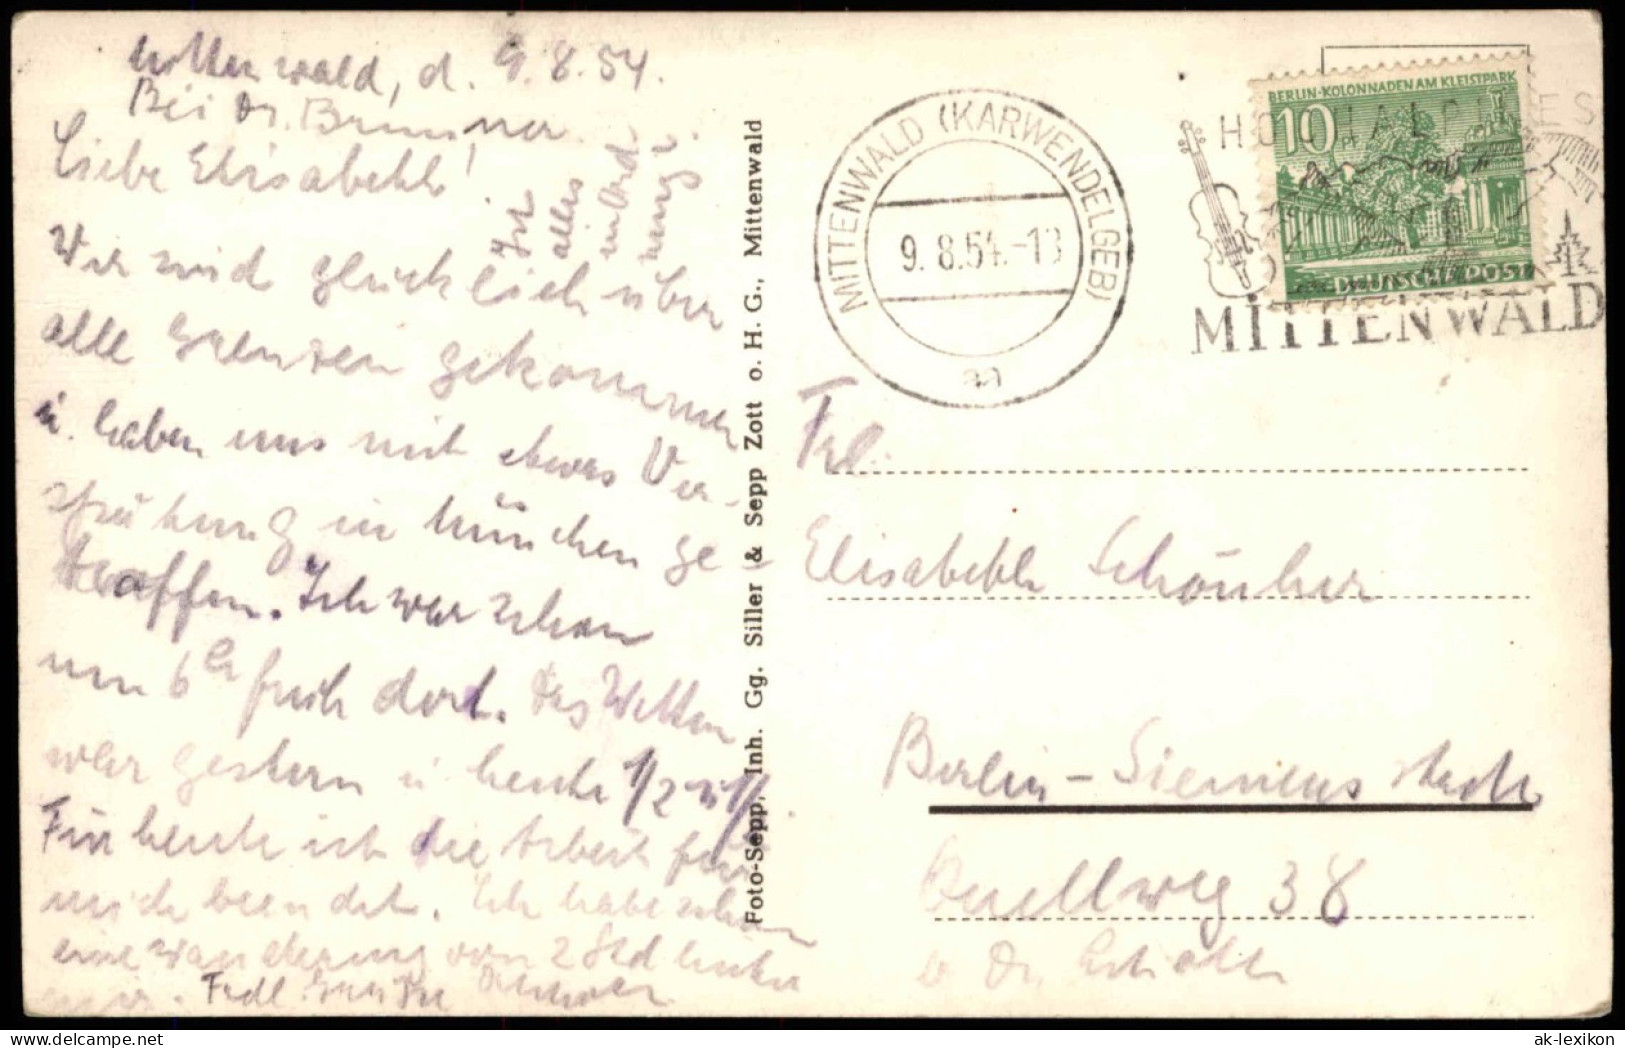 Mittenwald, d. 9.8.54.
Bei Dr. Brunner
Liebe Elisabeth!
Ist
alles
in Ord
nung?
Wir sind glücklich über
alle Grenzen gekommen
u. haben uns mit etwas Ver-
spätung in München ge-
troffen. Ich war schon
um 6h früh dort. Das Wetter
war gestern u heute 1/2 u 1/2
Für heute ist die Arbeit für
mich beendet. Ich habe schon
eine Wanderung von 2 Std hinter
mir. Frdl. Grüße
Foto-Sepp, Inh. Gg. Siller & Sepp Zott o. H. G., Mittenwald
MITTENWALD (KARWENDELGEB)
9. 8.54.-13
aa
BERLIN-KOLONNADEN AM KLEISTPARK
10
DEUTSCHE POST
MITTENWALD
Frl.
Elisabeth
Berlin-Siemensstadt
Quellweg 38
b Dr.
ak-lexikon